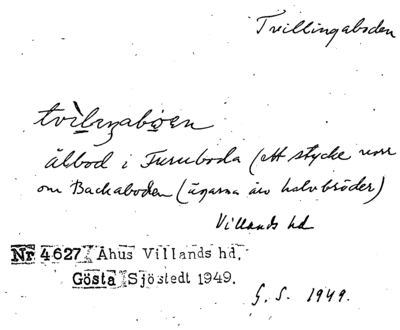 Tvillingaboden
tvilıŋabọen
ålbod i Furuboda (ett stycke norr
om Backaboden (ägarna äro halvbröder)
Villands hd
Nr 4627 Åhus Villands hd,
Gösta Sjöstedt 1949.
G. S. 1949.